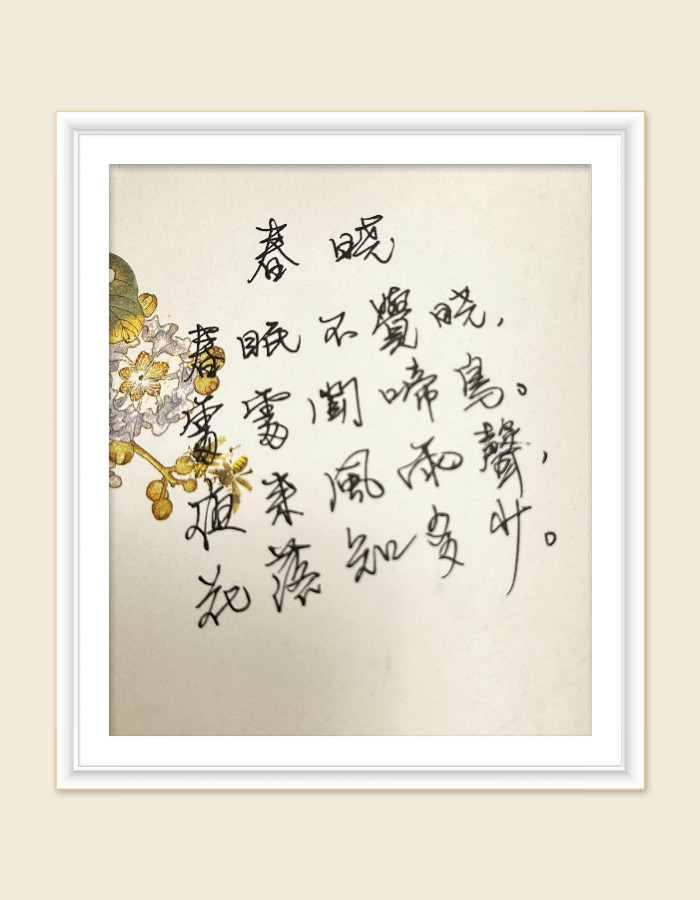 春晓
春眠不覺晓，
處處聞啼鳥。
夜来風雨聲，
花落知多少。